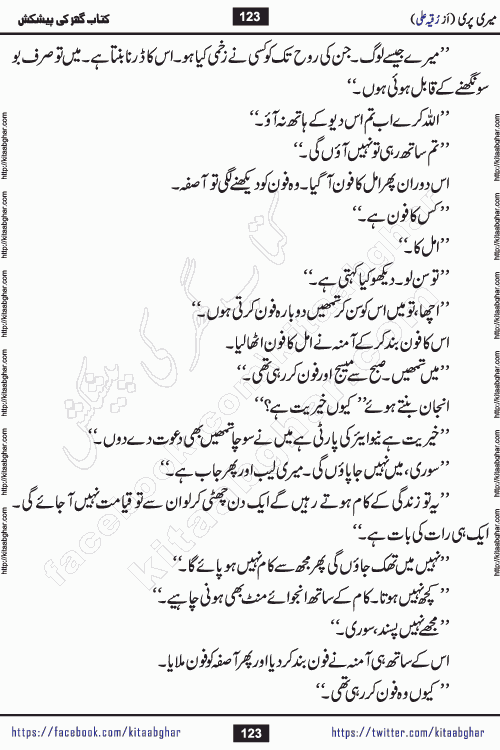 میری پری (از رقیہ علی)
123
کتاب گھر کی پیشکش
’’میرے جیسے لوگ۔ جن کی روح تک کو کسی نے زخمی کیا ہو۔ اس کا ڈرنا بنتا ہے۔ میں تو صرف بو
سونگھنے کے قابل ہوئی ہوں۔‘‘
’’اللہ کرے اب تم اس دیو کے ہاتھ نہ آؤ۔‘‘
’’تم ساتھ رہی تو نہیں آؤں گی۔‘‘
اس دوران پھر امل کا فون آ گیا۔ وہ فون کو دیکھنے لگی تو آصفہ۔
’’کس کا فون ہے۔‘‘
’’امل کا۔‘‘
’’تو سن لو۔ دیکھو کیا کہتی ہے۔‘‘
’’اچھا، تو میں اس کو سن کر تمھیں دوبارہ فون کرتی ہوں۔‘‘
اس کا فون بند کر کے آمنہ نے امل کا فون اٹھا لیا۔
’’میں تمھیں۔ صبح سے میسج اور فون کر رہی تھی۔‘‘
انجان بنتے ہوئے’’ کیوں خیریت ہے؟‘‘
’’خیریت ہے نیو ایئر کی پارٹی ہے میں نے سوچا تمھیں بھی دعوت دے دوں۔‘‘
’’سوری، میں نہیں جا پاؤں گی۔ میری لیب اور پھر جاب ہے۔‘‘
’’یہ تو زندگی کے کام ہوتے رہیں گے ایک دن چھٹی کر لو ان سے تو قیامت نہیں آ جائے گی۔
ایک ہی رات کی بات ہے۔‘‘
’’نہیں میں تھک جاؤں گی پھر مجھ سے کام نہیں ہو پائے گا۔‘‘
’’کچھ نہیں ہوتا۔ کام کے ساتھ انجوائے منٹ بھی ہونی چاہیے۔‘‘
’’مجھے نہیں پسند، سوری۔‘‘
اس کے ساتھ ہی آمنہ نے فون بند کر دیا اور پھر آصفہ کو فون ملایا۔
’’کیوں وہ فون کر رہی تھی۔‘‘
کتاب گھر کی پیشکش
facebook.com/kitaabghar
kitaabghar.com
http://kitaabghar.com http://kitaabghar.com http://kitaabghar.com http://kitaabghar.com http://kitaabghar.com http://kitaabghar.com
http://kitaabghar.com http://kitaabghar.com http://kitaabghar.com http://kitaabghar.com http://kitaabghar.com http://kitaabghar.com
https://facebook.com/kitaabghar
123
https://twitter.com/kitaabghar